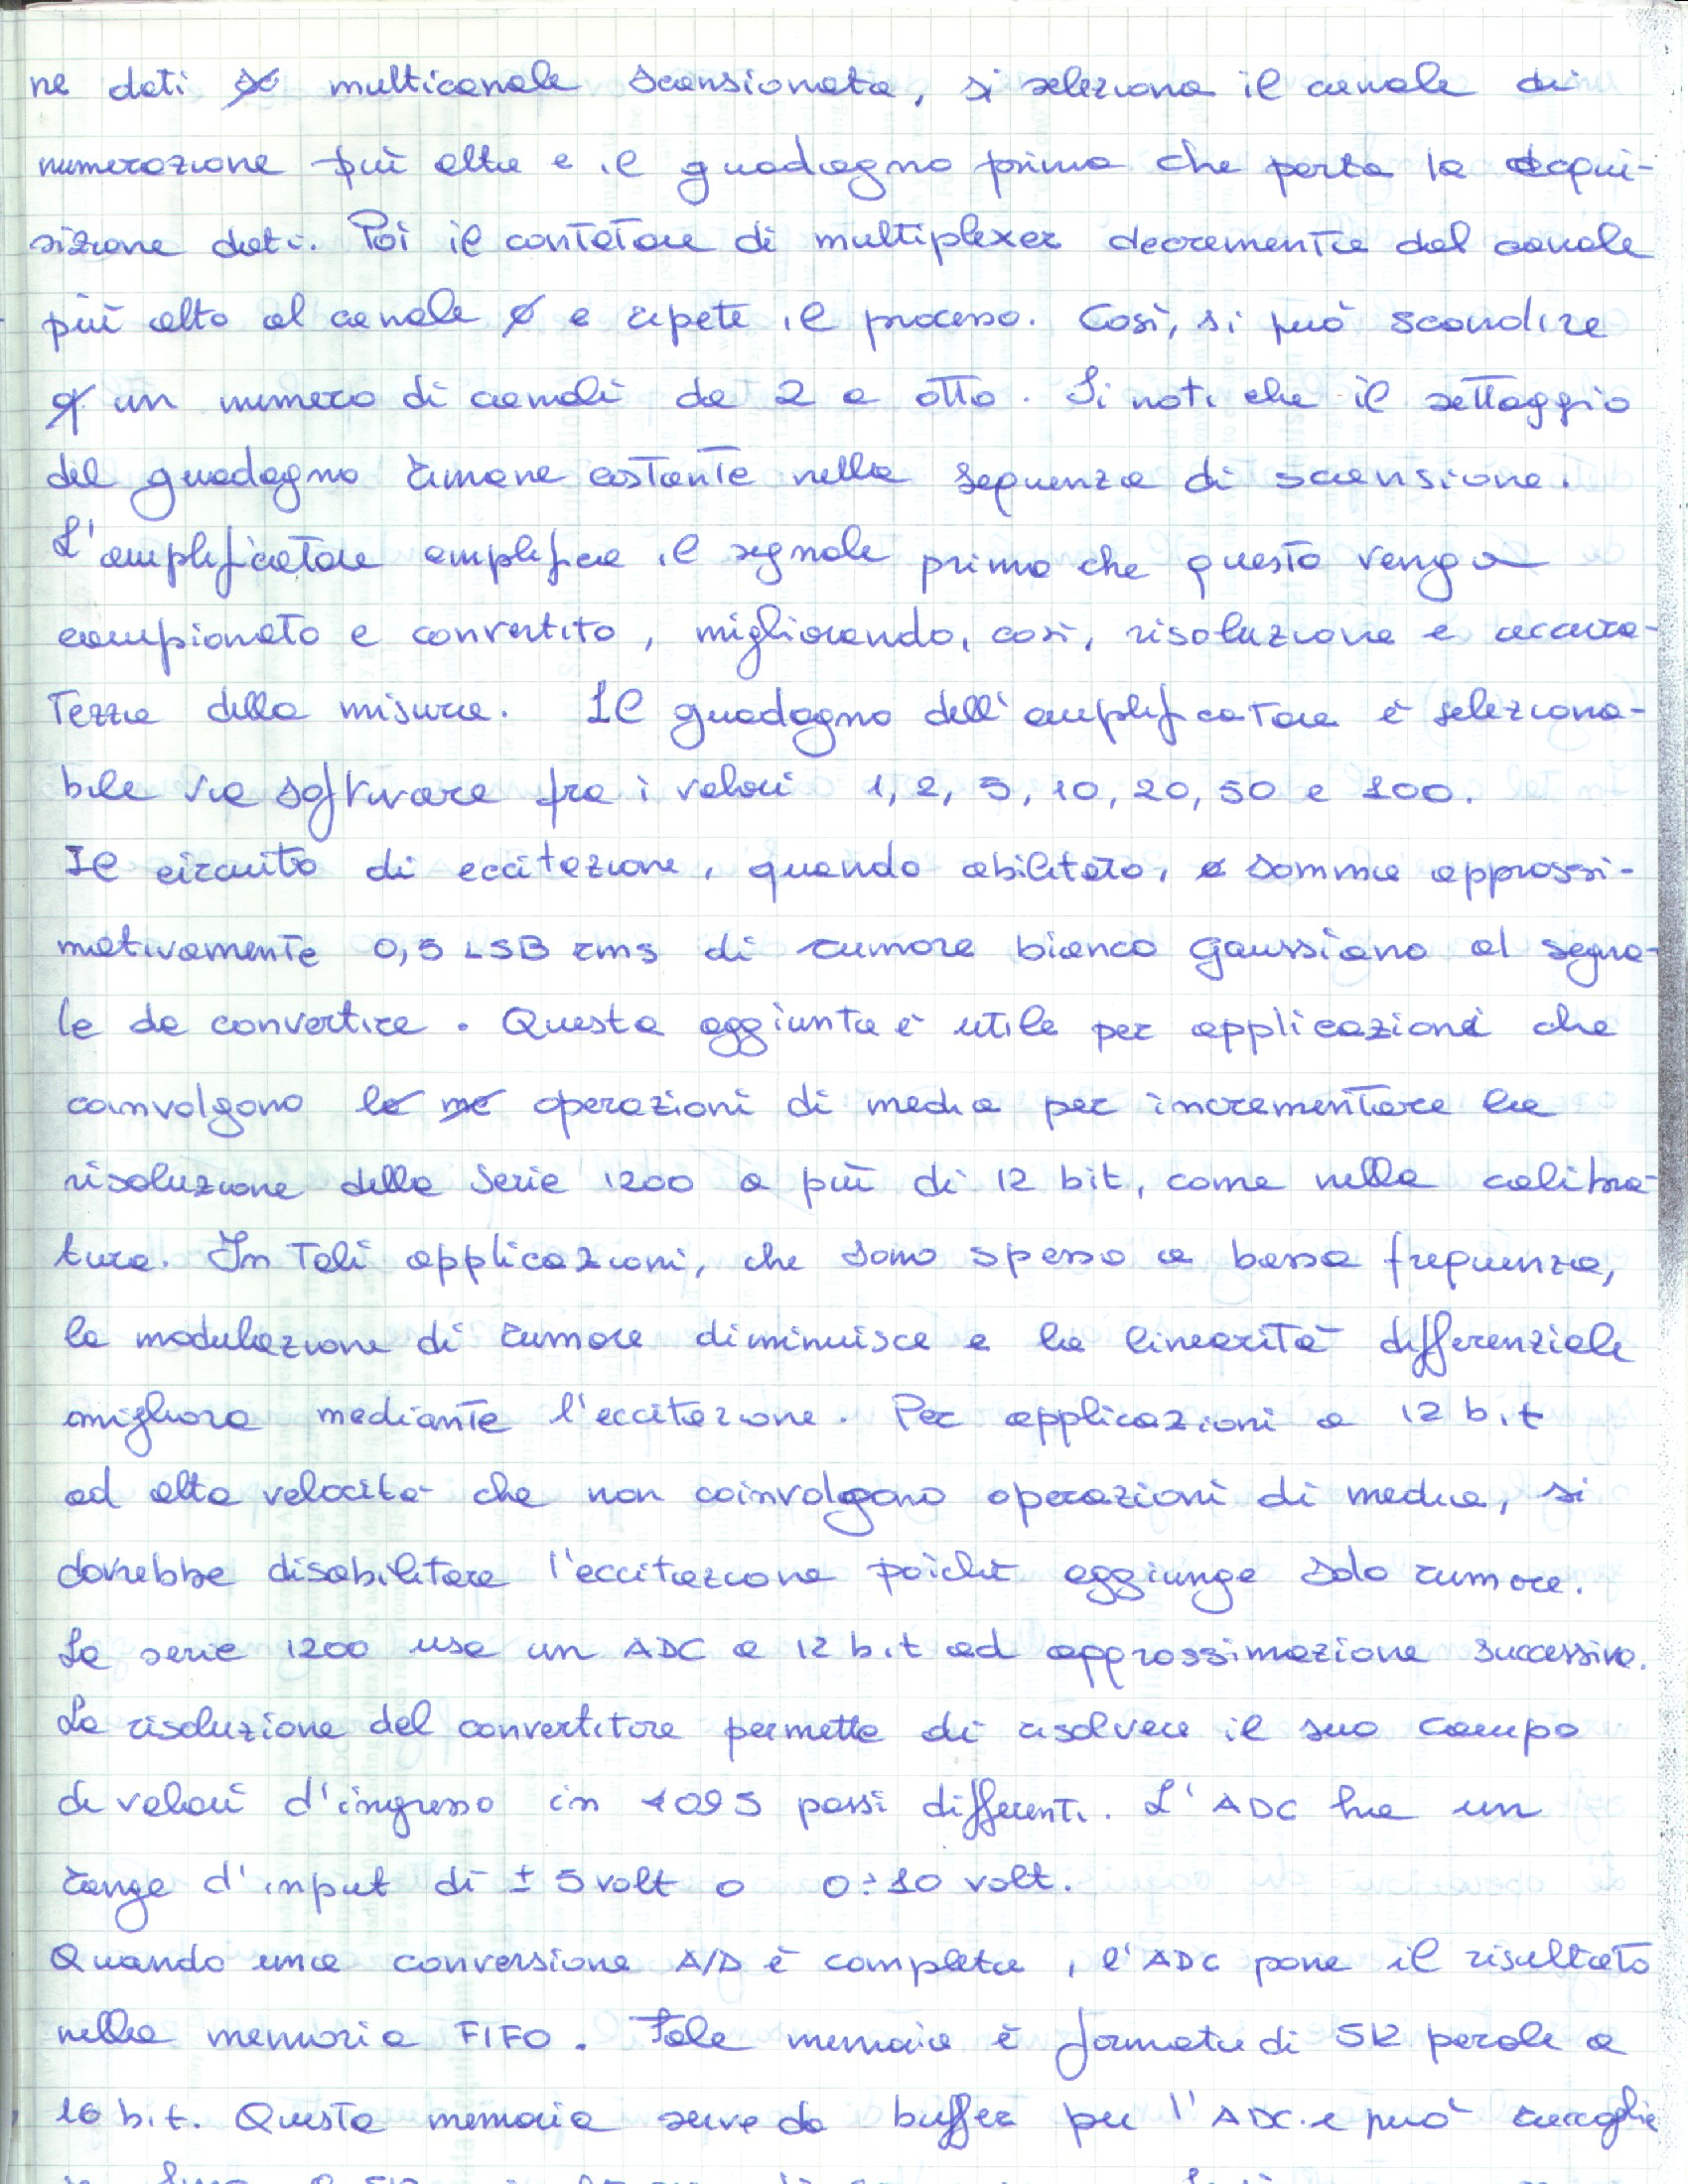 ne dati multicanale scansionata, si seleziona il canale di
numerazione più alta e il guadagno prima che parta la acqui-
sizione dati. Poi il contatore di multiplexer decrementa dal canale
più alto al canale ø e ripete il processo. Così, si può scandire
un numero di canali da 2 a otto. Si noti che il settaggio
del guadagno rimane costante nella sequenza di scansione.
L'amplificatore amplifica il segnale prima che questo venga
campionato e convertito, migliorando, così, risoluzione e accura-
tezza della misura. Il guadagno dell'amplificatore è seleziona-
bile via software fra i valori 1, 2, 5, 10, 20, 50 e 100.
Il circuito di eccitazione, quando abilitato, somma approssi-
mativamente 0,5 LSB rms di rumore bianco gaussiano al segna-
le da convertire. Questa aggiunta è utile per applicazioni che
coinvolgono operazioni di media per incrementare la
risoluzione della serie 1200 a più di 12 bit, come nella calibra-
tura. In tali applicazioni, che sono spesso a bassa frequenza,
la modulazione di rumore diminuisce e la linearità differenziale
migliora mediante l'eccitazione. Per applicazioni a 12 bit
ad alta velocità che non coinvolgono operazioni di media, si
dovrebbe disabilitare l'eccitazione poiché aggiunge solo rumore.
La serie 1200 usa un ADC a 12 bit ad approssimazione successiva.
La risoluzione del convertitore permette di risolvere il suo campo
di valori d'ingresso in 4095 passi differenti. L'ADC ha un
range d'input di ± 5 volt o 0÷10 volt.
Quando una conversione A/D è completa, l'ADC pone il risultato
nella memoria FIFO. Tale memoria è formata di 5K parole a
16 bit. Questa memoria serve da buffer per l'ADC e può raccoglie